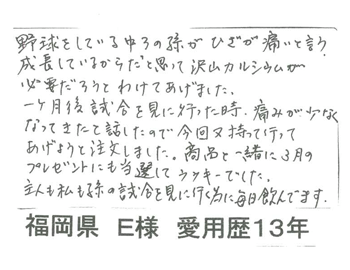 野球をしている中3の孫がひざが痛いと言う
成長しているからだと思って沢山カルシウムが
必要だろうとわけてあげました。
一ヶ月後試合を見に行った時、痛みが少なく
なってきたと話したので今回又持って行って
あげようと注文しました。商品と一緒に3月の
プレゼントにも当選してラッキーでした。
主人も私も孫の試合を見に行く為に毎日飲んでます。
福岡県 E様 愛用歴13年